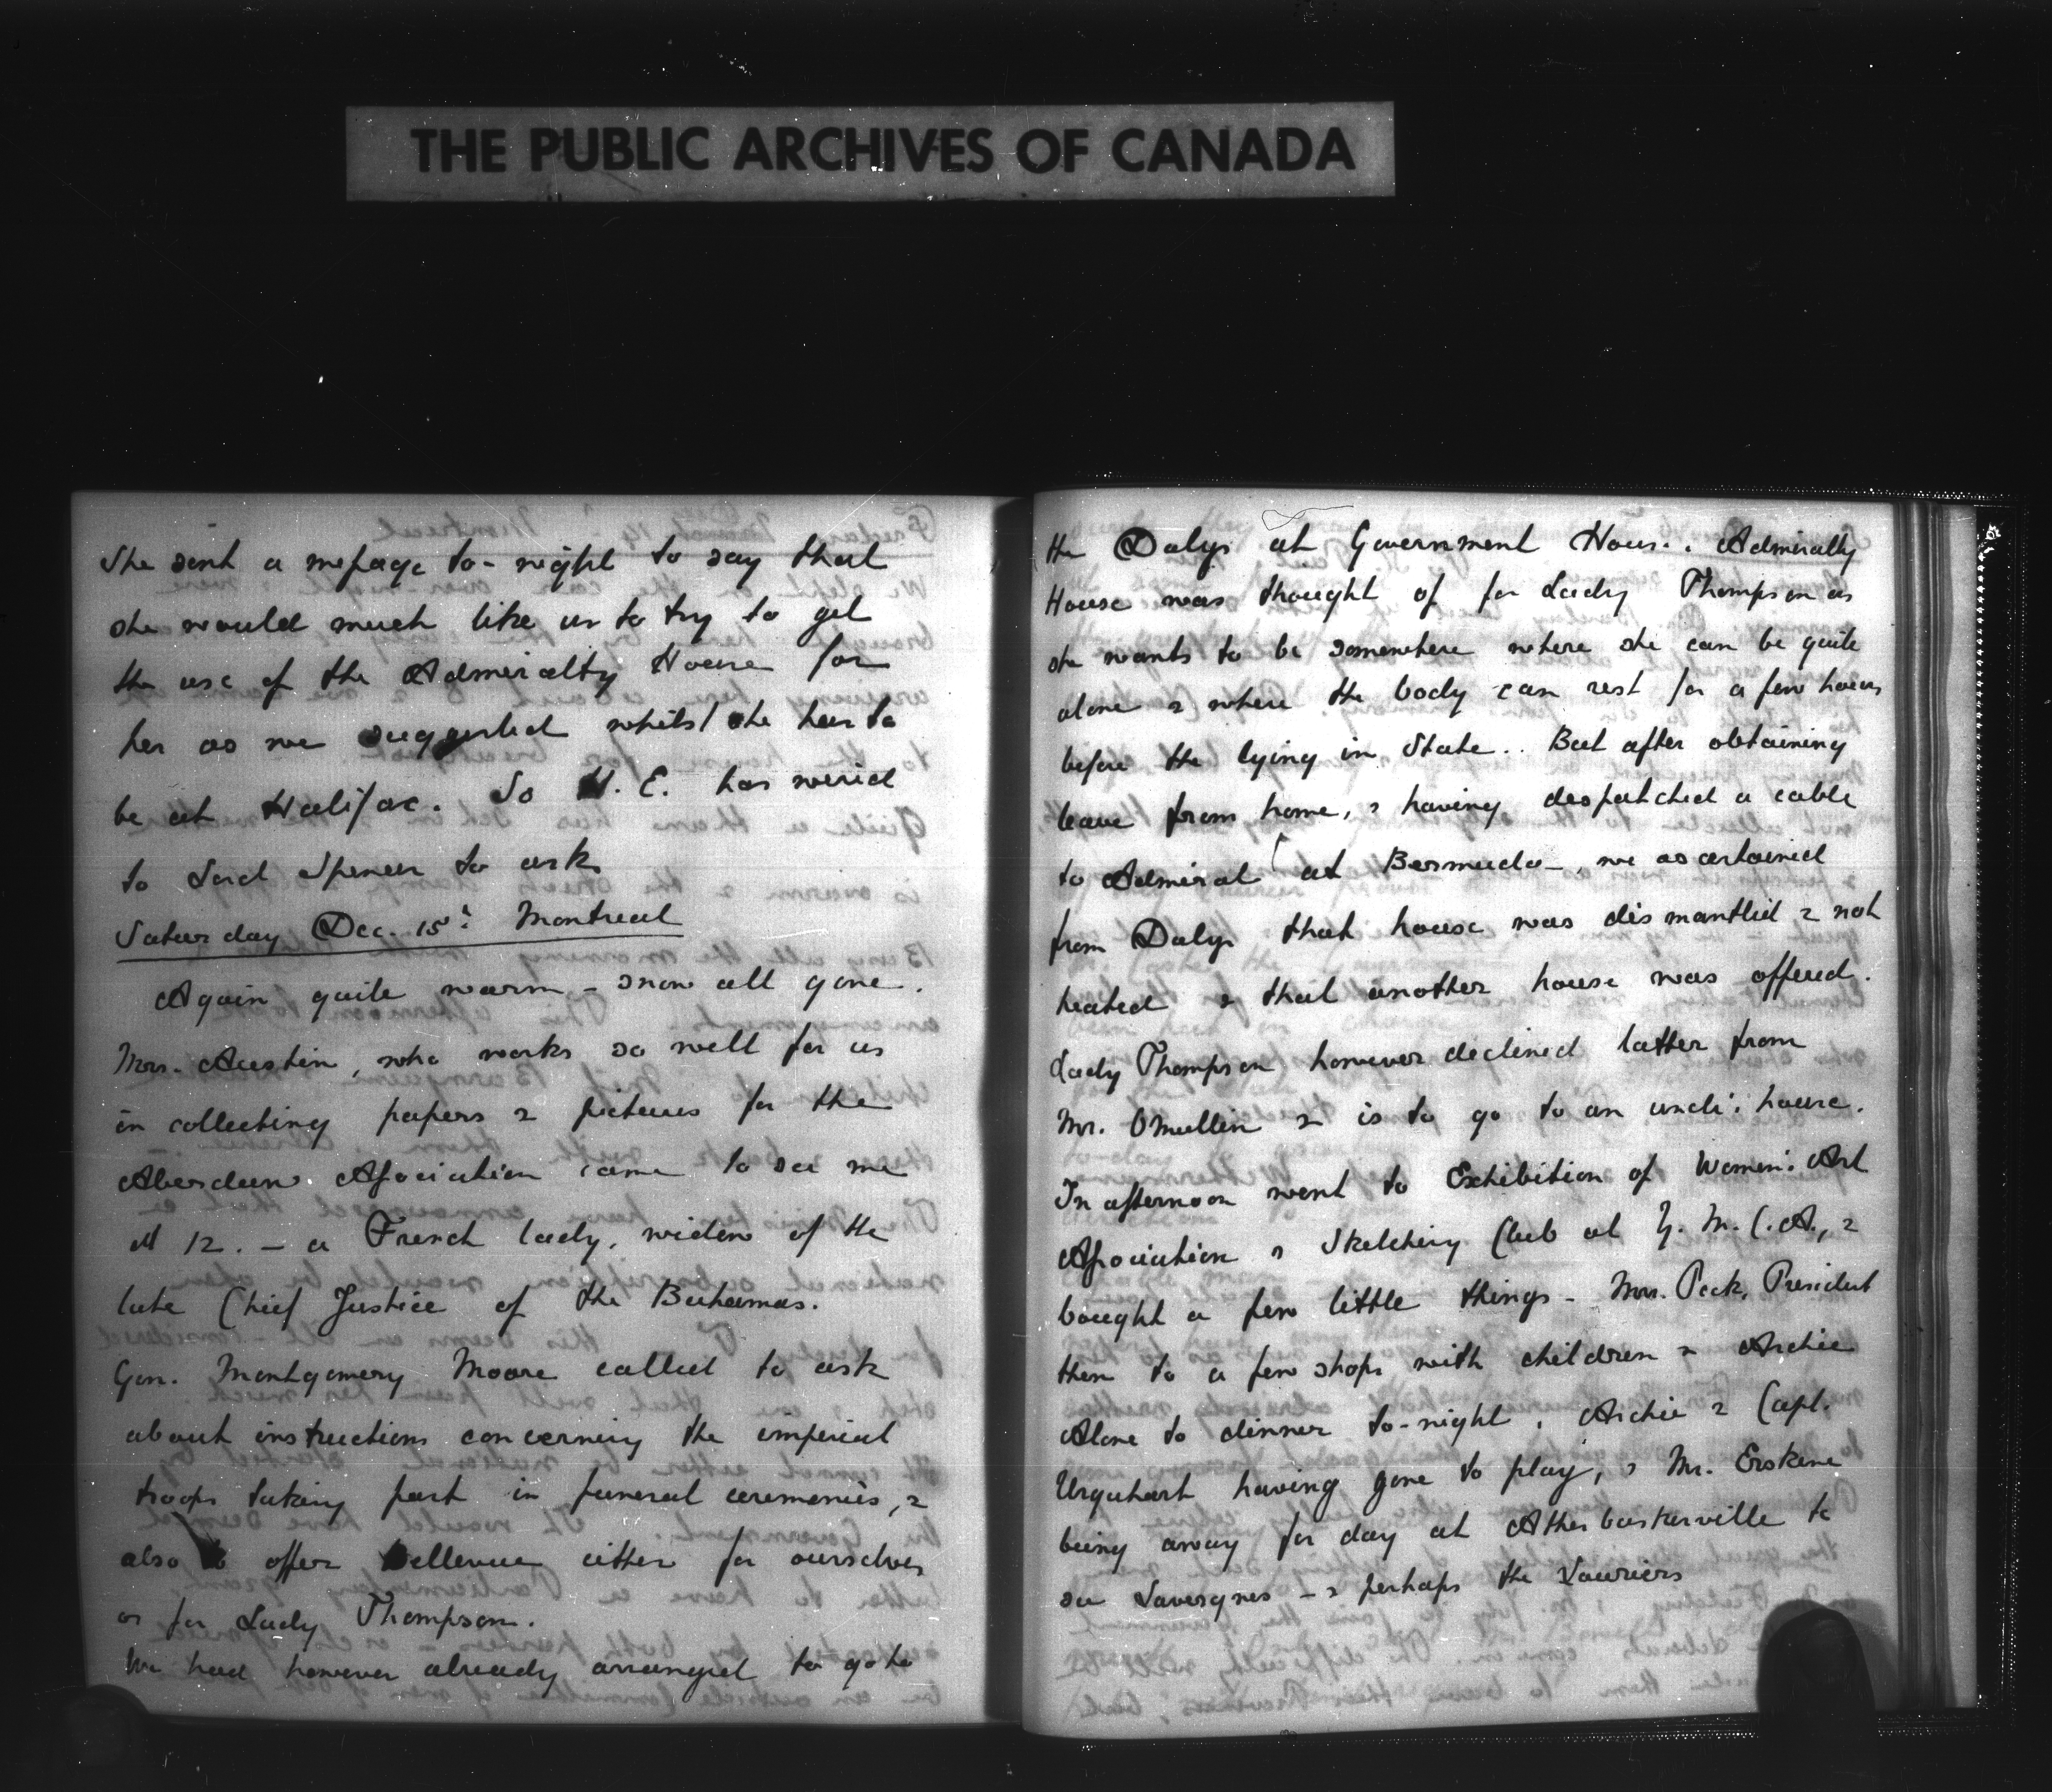 THE PUBLIC ARCHIVES OF CANADA
She sent a message to-night to say that
she would much like us to try to get
the use of the Admiralty House for
her as we suggested whilst she has to
be at Halifax. So H. E. has wired
to Lord Spencer to ask
Saturday Dec. 15th Montreal
Again quite warm - snow all gone.
Mrs. Austin, who works so well for us
in collecting papers & pictures for the
Aberdeen Association came to see me
at 12. – a French lady, widow of the
late Chief Justice of the Bahamas.
Gen. Montgomery Moore called to ask
about instructions concerning the imperial
troops taking part in funeral ceremonies, &
also to offer Bellevue either for ourselves
or for Lady Thompson.
We had however already arranged to go to
the Dalys at Government House. Admiralty
House was thought of for Lady Thompson as
she wants to be somewhere where she can be quite
alone & where the body can rest for a few hours
before the lying in State.. But after obtaining
leave from home, & having despatched a cable
to Admiral ( at Bermuda –, we ascertained
from Dalys that house was dismantled & not
heated & that another house was offered.
Lady Thompson however declined latter from
Mr. OMullin & is to go to an uncle's house.
In afternoon went to Exhibition of Women's Art
Association & Sketching Club at Y. M. C. A., &
bought a few little things - Mrs. Peck, President
then to a few shops with children & Archie
Alone to dinner to-night, Archie & Capt.
Urquhart having gone to play, & Mr. Erskine
being away for day at Athabaskerville to
see Lavergnes – & perhaps the Lauriers